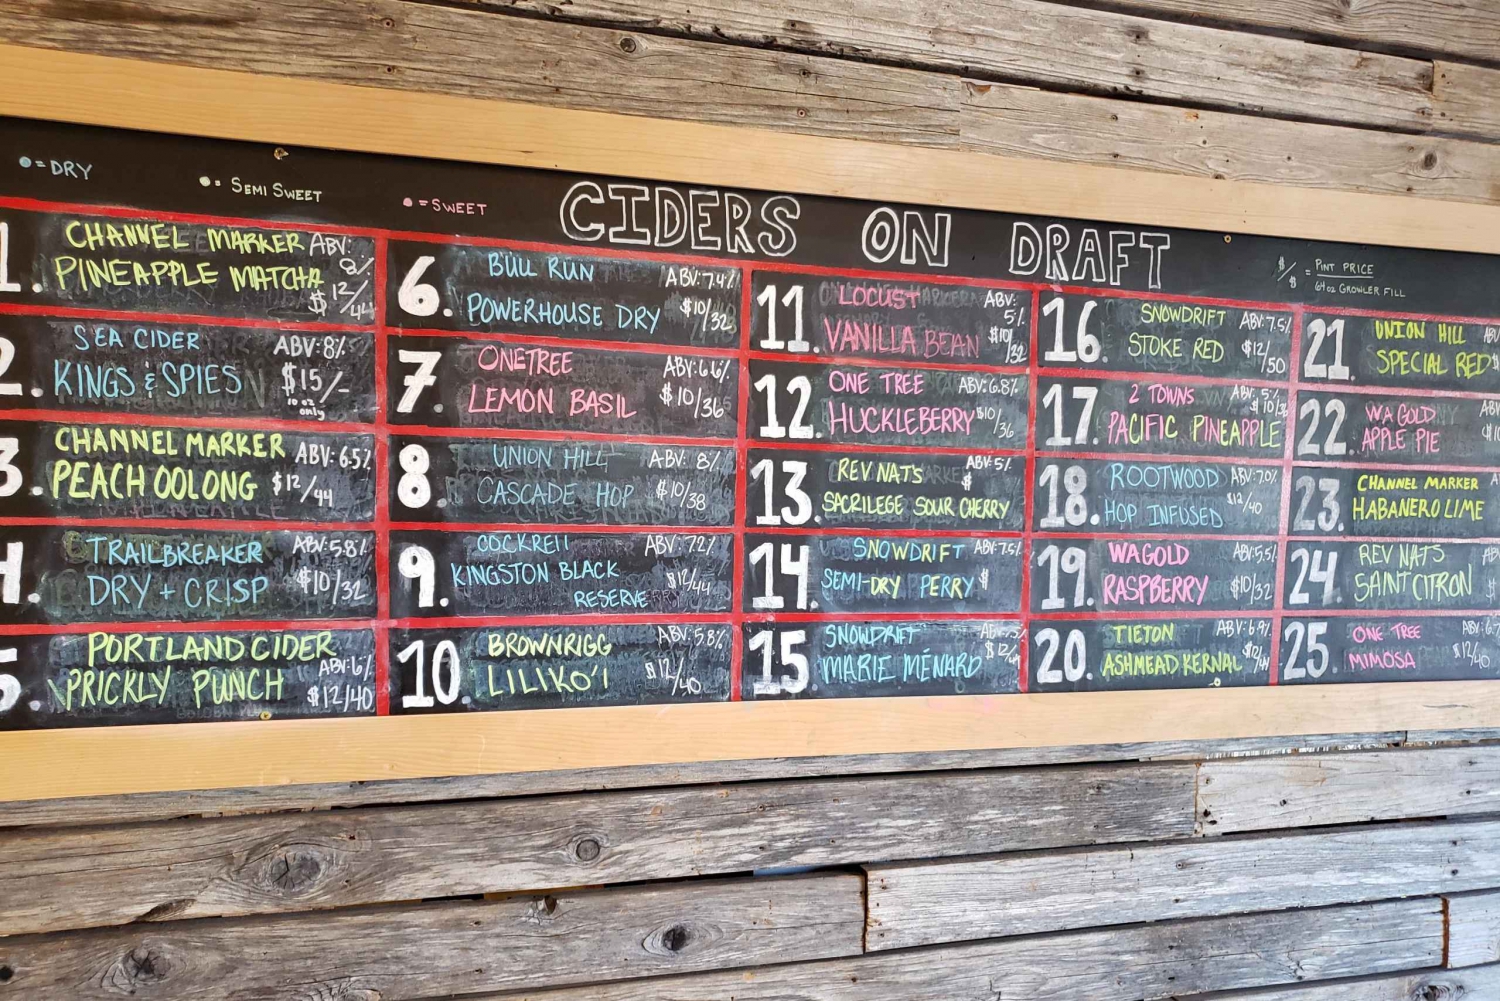 = DRY
= SEMI SWEET
= SWEET
CIDERS ON DRAFT
$/$ = PINT PRICE
64 oz GROWLER FILL
1. CHANNEL MARKER ABV: 8%
PINEAPPLE MATCHA $12/44
2. SEA CIDER ABV: 8%
KINGS & SPIES $15/-
10 oz only
3. CHANNEL MARKER ABV: 6.5%
PEACH OOLONG $12/44
4. TRAILBREAKER ABV: 5.8%
DRY + CRISP $10/32
5. PORTLAND CIDER
PRICKLY PUNCH ABV: 6%
$12/40
6. BULL RUN ABV: 7.4%
POWERHOUSE DRY $10/32
7. ONETREE ABV: 6.6%
LEMON BASIL $10/36
8. UNION HILL ABV: 8%
CASCADE HOP $10/38
9. COCKRELL ABV: 7.2%
KINGSTON BLACK
RESERVE $12/44
10. BROWNRIGG ABV: 5.8%
LILIKO'I $12/40
11. LOCUST ABV: 5%
VANILLA BEAN $10/32
12. ONE TREE ABV: 6.8%
HUCKLEBERRY $10/36
13. REV NATS ABV: 5%
$
SACRILEGE SOUR CHERRY
14. SNOWDRIFT ABV: 7.5%
SEMI-DRY PERRY $
15. SNOWDRIFT
MARIE MÉNARD $12/
16. SNOWDRIFT ABV: 7.5%
STOKE RED $12/50
17. 2 TOWNS ABV: 5%
PACIFIC PINEAPPLE
18. ROOTWOOD ABV: 7.0%
HOP INFUSED $12/40
19. WAGOLD ABV: 5.5%
RASPBERRY $10/32
20. TIETON ABV: 6.9%
ASHMEAD KERNAL $12/44
21. UNION HILL
SPECIAL RED
22. WAGOLD
APPLE PIE
23. CHANNEL MARKER
HABANERO LIME
24. REV NATS
SAINT CITRON
25. ONE TREE
MIMOSA $12/40